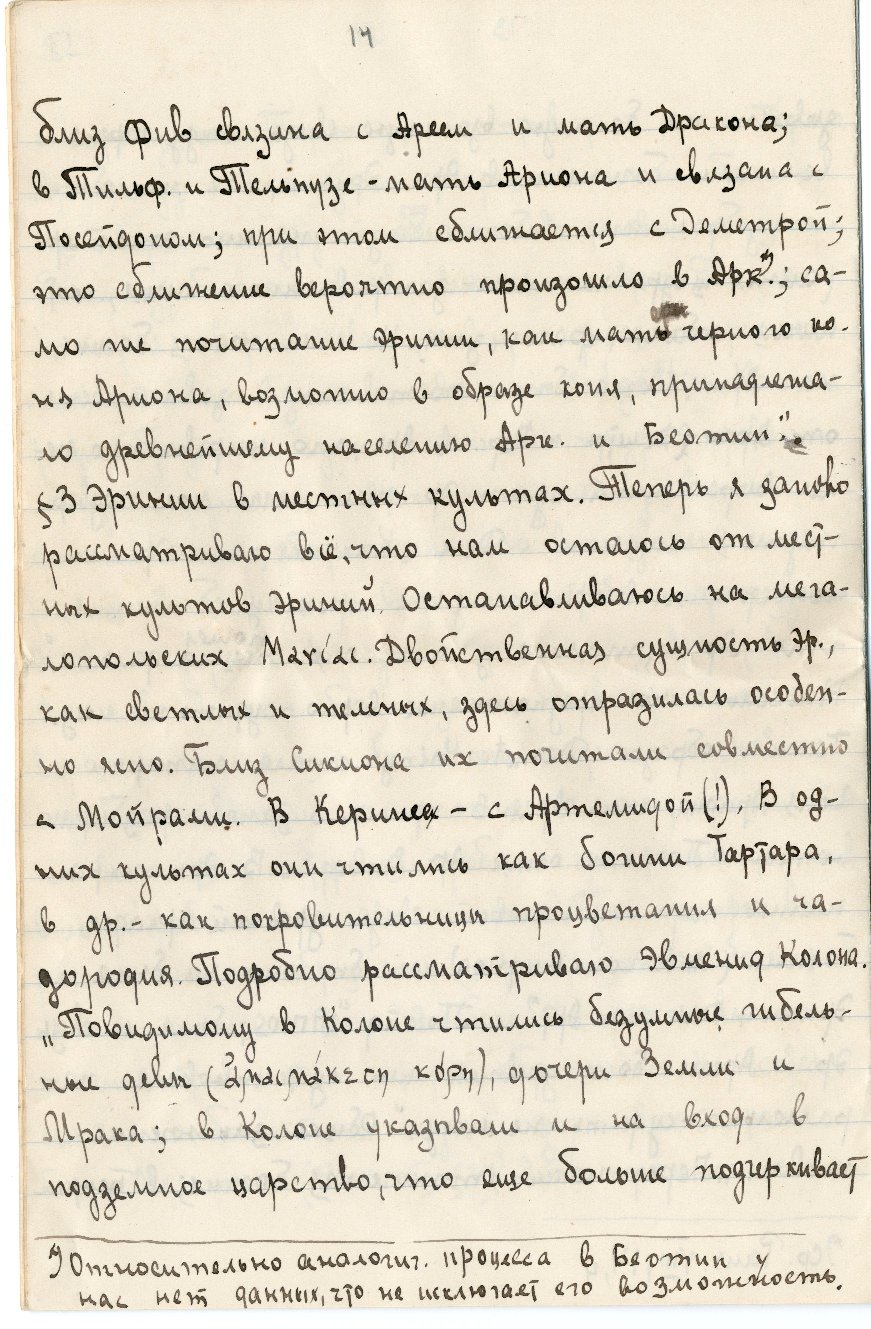 14
близ Фив связана с Ареем и мать Дракона;
в Тильф. и Тельпузе - мать Ариона и связана с
Посейдоном; при этом сближается с Деметрой;
это сближение вероятно произошло в Арк.¹⁾; са-
мо же почитание Эринии, как мать черного ко-
ня Ариона, возможно в образе коня, принадлежа-
ло древнейшему населению Арк. и Беотии".
§3 Эринии в местных культах. Теперь я заново
рассматриваю всё, что нам осталось от мест-
ных культов Эриний. Останавливаюсь на мега-
лопольских Μανίαι. Двойственная сущность Эр.,
как светлых и темных, здесь отразилась особен-
но ясно. Близ Сикиона их почитали совместно
с Мойрами. В Керинее - с Артемидой (!). В од-
них культах они чтились как богини Тартара,
в др. - как покровительницы процветания и ча-
дородия. Подробно рассматриваю Эвменид Колона.
„Повидимому в Колоне чтились безумные гибель-
ные девы ( κόρη), дочери Земли и
Мрака; в Колоне указывали и на вход в
подземное царство, что еще больше подчеркивает
¹⁾ Относительно аналогич. процесса в Беотии у
нас нет данных, что не исключает его возможность.